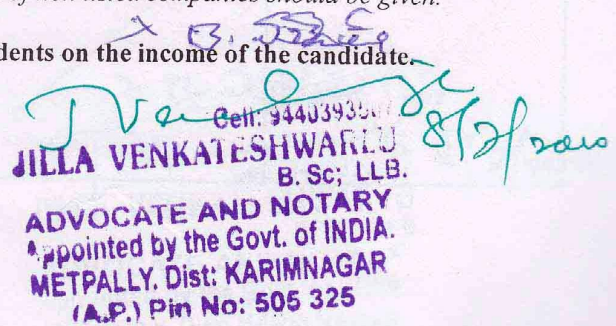 of non listed companies should be given.
X
dents on the income of the candidate.
Cell: 944039350
JILLA VENKATESHWARLU
B. Sc; LLB.
ADVOCATE AND NOTARY
Appointed by the Govt. of INDIA.
METPALLY. Dist: KARIMNAGAR
(A.P.) Pin No: 505 325
8/2/2010